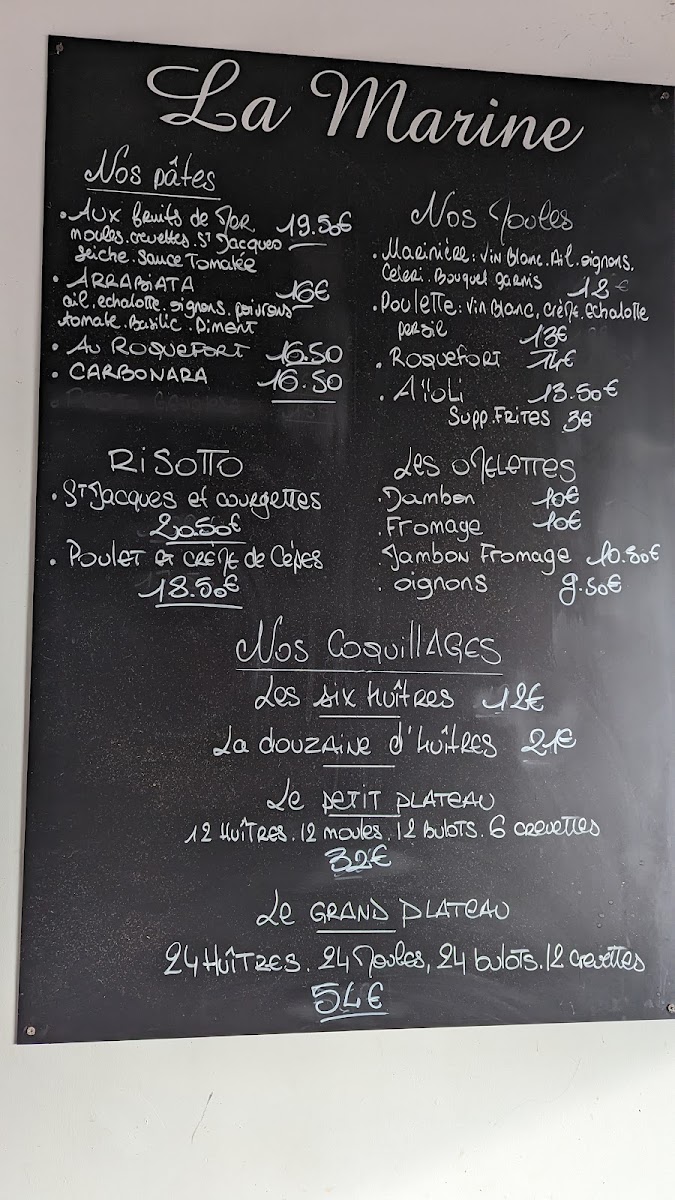 La Marine
Nos pâtes
• AUX fruits de Mer 19.50€
moules. crevettes. ST Jacques
Seiche. Sauce Tomatée
• ARRABiATA 16€
ail. echalotte. oignons. poivrons
tomate. Basilic. Piment
• AU ROQUEFORT 16.50
• CARBONARA 16.50
Nos Moules
• Marinière: Vin Blanc. Ail. oignons.
Celeri. Bouquet garnis 12€
• Poulette: Vin Blanc, crème echalotte
persil 13€
• Roquefort 14€
• Aïoli 13.50€
Supp. FRITES 3€
RiSOTTO
• ST Jacques et courgettes
20.50€
• Poulet et crème de Cèpes
18.50€
Les OMELETTES
• Jambon 10€
• Fromage 10€
• Jambon Fromage 10.80€
• oignons 9.50€
Nos COQUILLAGES
Les six Huîtres 12€
La douzaine d'Huîtres 21€
Le PETIT PLATEAU
12 Huîtres. 12 moules. 12 bulots. 6 crevettes
32€
Le GRAND PLATEAU
24 Huîtres. 24 Moules, 24 bulots. 12 Crevettes
54€